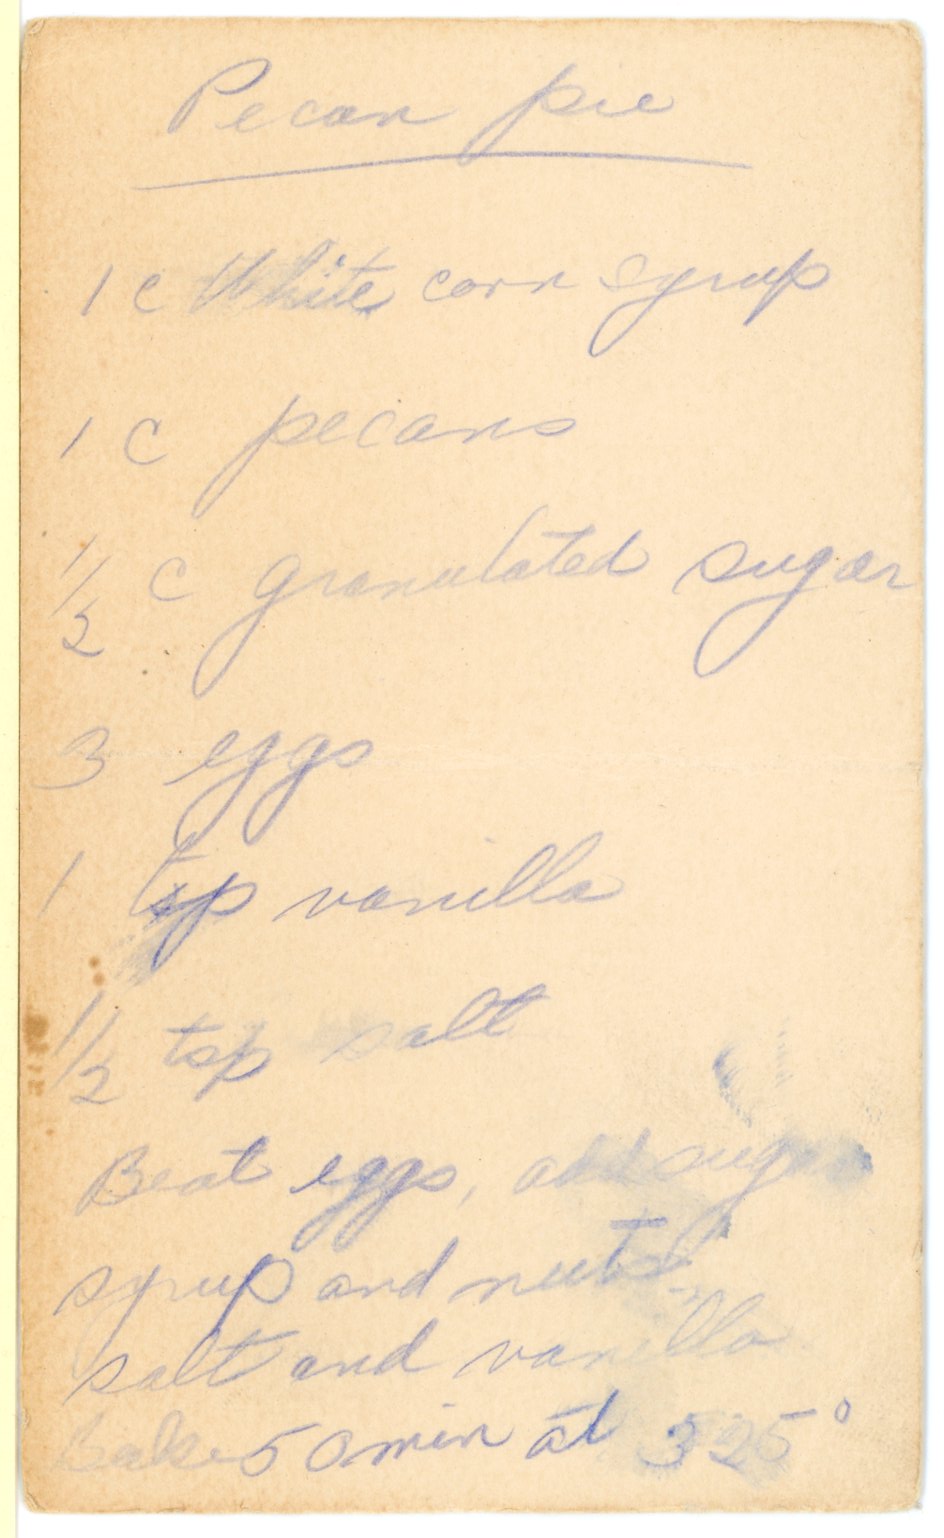 Pecan pie
1 c White corn syrup
1 c pecans
1/2 c granulated sugar
3 eggs
1 tsp vanilla
1/2 tsp salt
Beat eggs, add sugar
syrup and nuts,
salt and vanilla
Bake 50 min at 325°